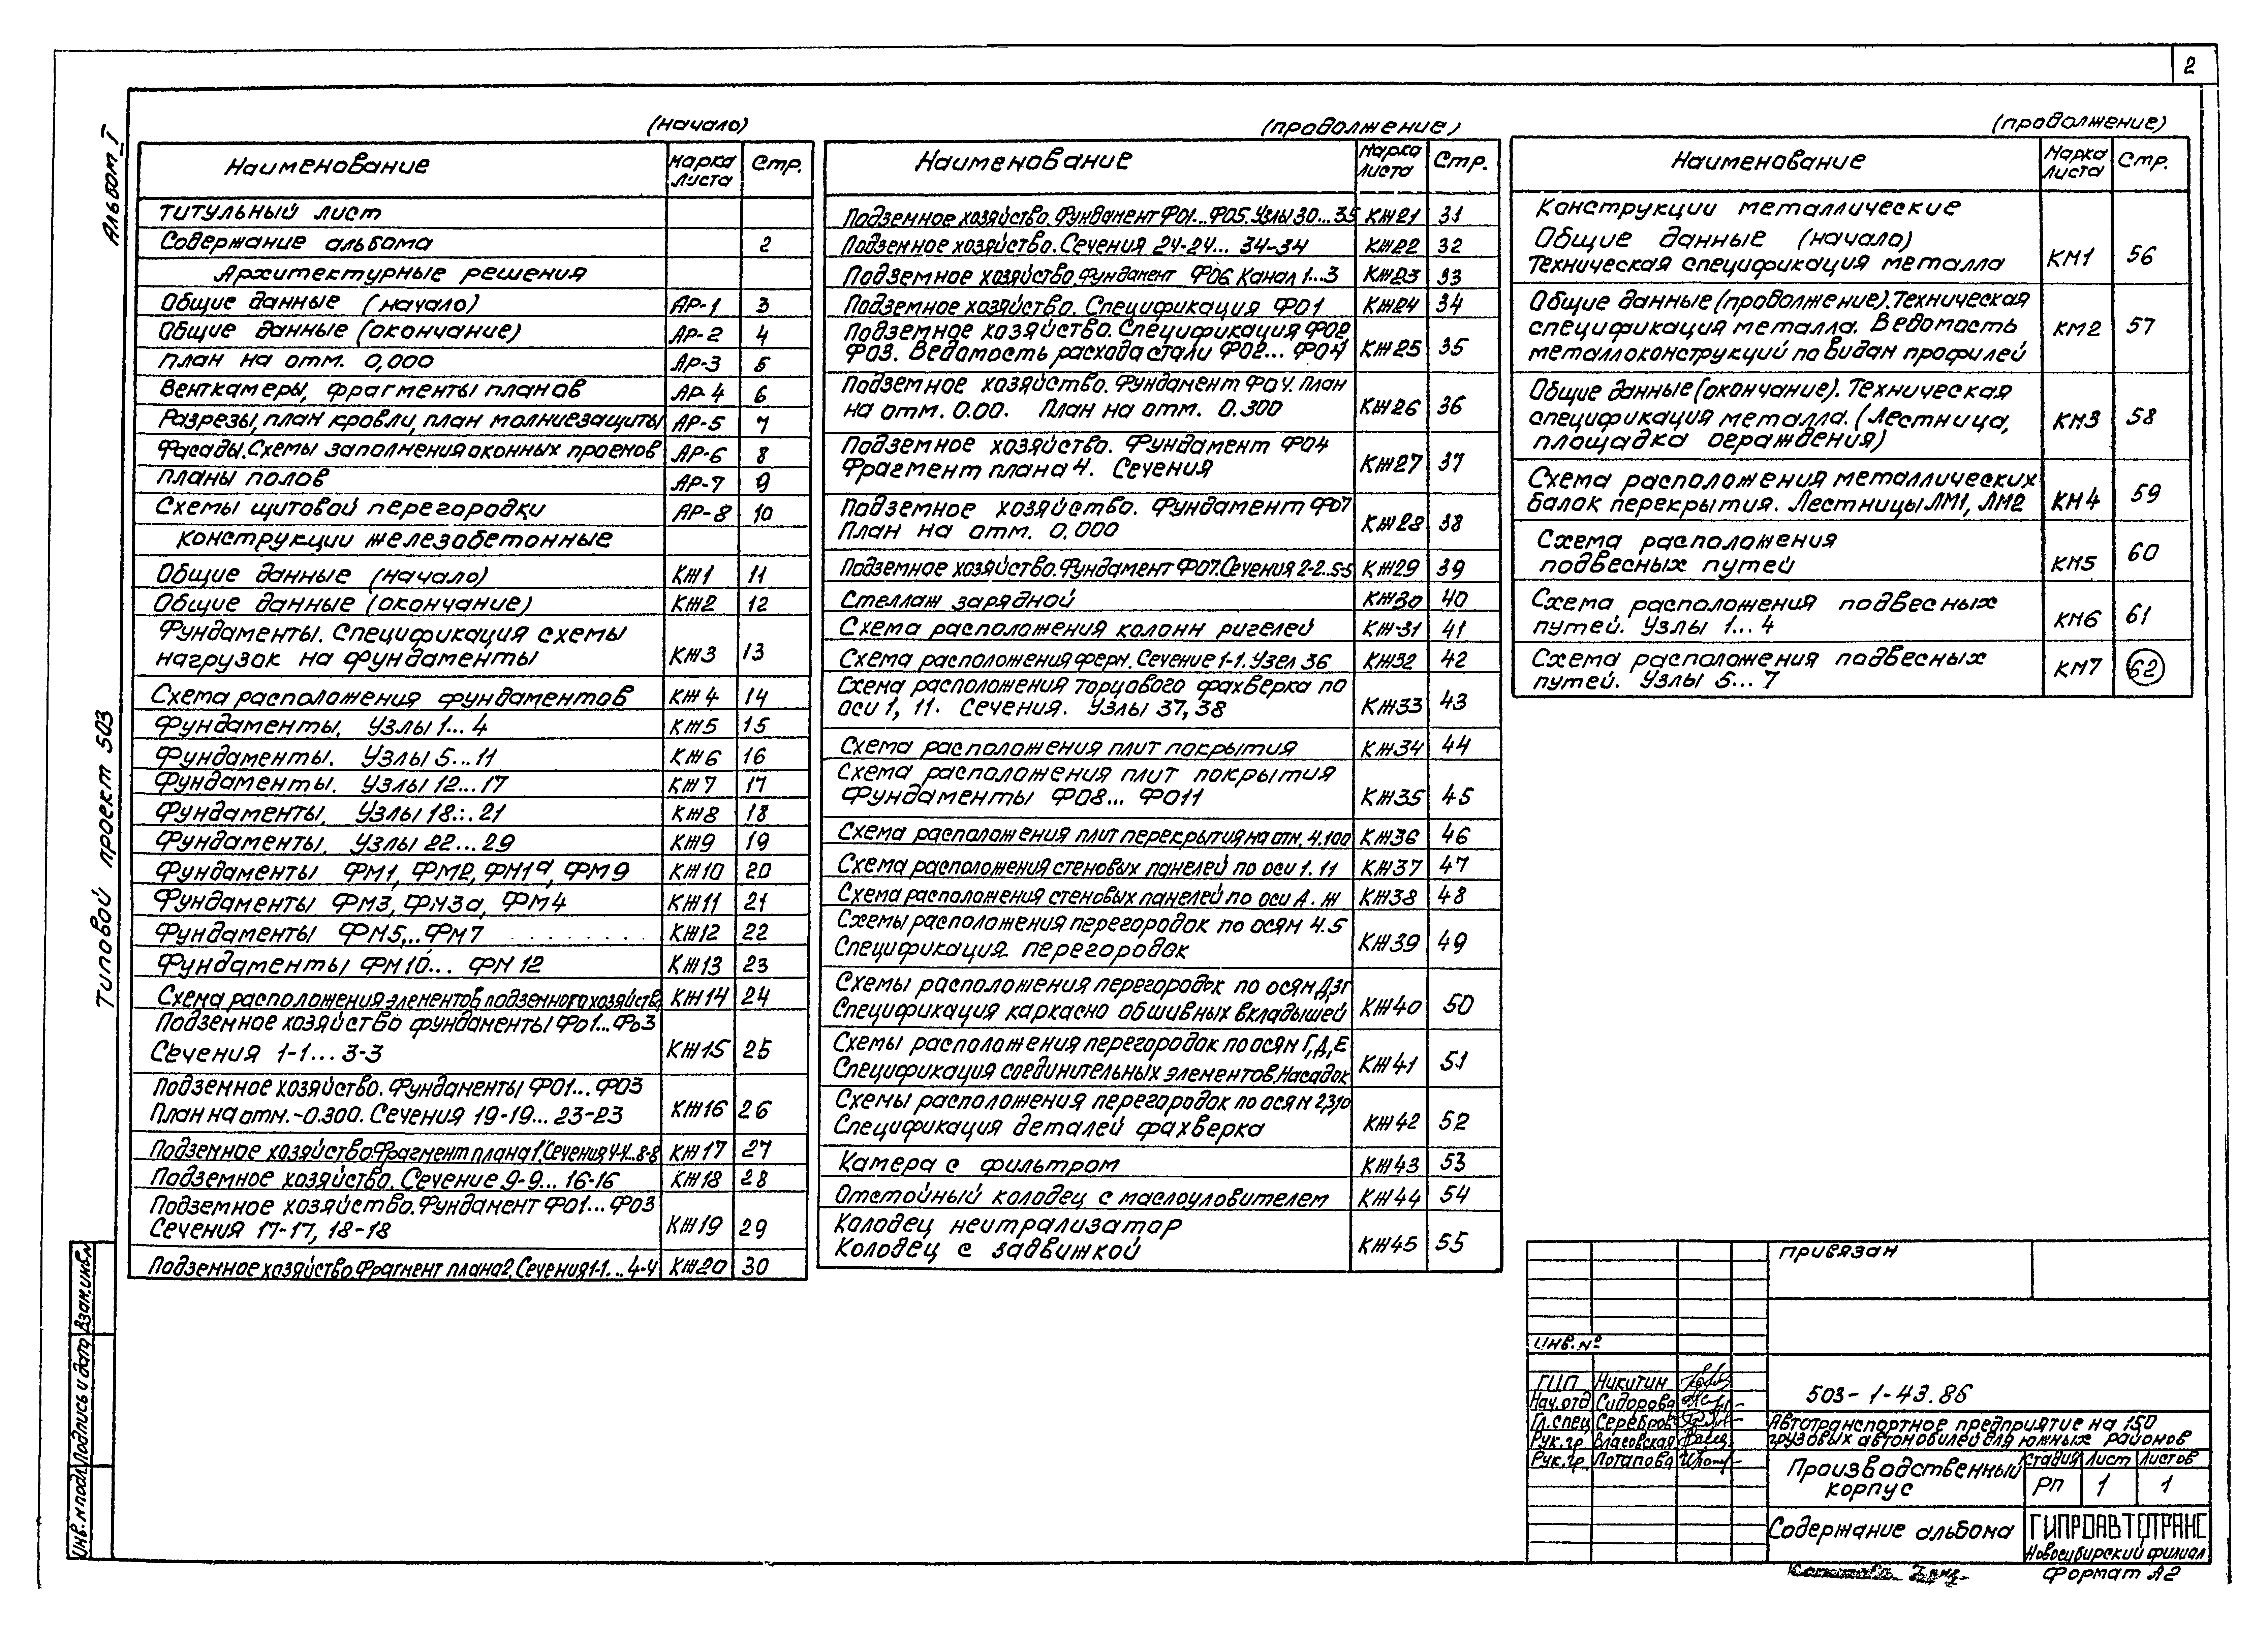 2
Альбом I
Типовой проект 503
(начало)
Наименование Марка листа Стр.
Титульный лист
Содержание альбома 2
Архитектурные решения
Общие данные (начало) АР-1 3
Общие данные (окончание) АР-2 4
План на отм. 0,000 АР-3 5
Венткамеры, фрагменты планов АР-4 6
Разрезы, план кровли, план молниезащиты АР-5 7
Фасады. Схемы заполнения оконных проемов АР-6 8
Планы полов АР-7 9
Схемы щитовой перегородки АР-8 10
Конструкции железобетонные
Общие данные (начало) КЖ1 11
Общие данные (окончание) КЖ2 12
Фундаменты. Спецификация схемы
нагрузок на фундаменты КЖ3 13
Схема расположения фундаментов КЖ4 14
Фундаменты. Узлы 1...4 КЖ5 15
Фундаменты. Узлы 5...11 КЖ6 16
Фундаменты. Узлы 12...17 КЖ7 17
Фундаменты. Узлы 18...21 КЖ8 18
Фундаменты. Узлы 22...29 КЖ9 19
Фундаменты ФМ1, ФМ2, ФМ1а, ФМ9 КЖ10 20
Фундаменты ФМ3, ФМ3а, ФМ4 КЖ11 21
Фундаменты ФМ5...ФМ7 КЖ12 22
Фундаменты ФМ10... ФМ12 КЖ13 23
Схема расположения элементов подземного хозяйства КЖ14 24
Подземное хозяйство фундаменты Фо1...Фо3
Сечения 1-1...3-3 КЖ15 25
Подземное хозяйство. Фундаменты Ф01... Ф03
План на отм.-0.300. Сечения 19-19... 23-23 КЖ16 26
Подземное хозяйство. Фрагмент плана 1. Сечения 4-4...8-8 КЖ17 27
Подземное хозяйство. Сечение 9-9... 16-16 КЖ18 28
Подземное хозяйство. Фундамент Ф01...Ф03
Сечения 17-17, 18-18 КЖ19 29
Подземное хозяйство. Фрагмент плана 2. Сечения 1-1... 4-4 КЖ20 30
(продолжение)
Наименование Марка листа Стр.
Подземное хозяйство. Фундамент Ф01...Ф05. Узлы 30...35 КЖ21 31
Подземное хозяйство. Сечения 24-24... 34-34 КЖ22 32
Подземное хозяйство. Фундамент Ф06 Канал 1...3 КЖ23 33
Подземное хозяйство. Спецификация Ф01 КЖ24 34
Подземное хозяйство. Спецификация Ф02
Ф03. Ведомость расхода стали Ф02... Ф04 КЖ25 35
Подземное хозяйство. Фундамент Ф04. План
на отм. 0.00. План на отм. 0.300 КЖ26 36
Подземное хозяйство. Фундамент Ф04
Фрагмент плана 4. Сечения КЖ27 37
Подземное хозяйство. Фундамент Ф07
План на отм. 0,000 КЖ28 38
Подземное хозяйство. Фундамент Ф07. Сечения 2-2..5-5 КЖ29 39
Стеллаж зарядной КЖ30 40
Схема расположения колонн ригелей КЖ31 41
Схема расположения ферм. Сечение 1-1. Узел 36 КЖ32 42
Схема расположения торцового фахверка по
оси 1, 11. Сечения. Узлы 37, 38 КЖ33 43
Схема расположения плит покрытия КЖ34 44
Схема расположения плит покрытия
Фундаменты Ф08... Ф011 КЖ35 45
Схема расположения плит перекрытия на отм. 4.100 КЖ36 46
Схема расположения стеновых панелей по оси 1. 11 КЖ37 47
Схема расположения стеновых панелей по оси А. Ж КЖ38 48
Схемы расположения перегородок по осям 4.5
Спецификация перегородок КЖ39 49
Схемы расположения перегородок по осям
Спецификация каркасно обшивных вкладышей КЖ40 50
Схемы расположения перегородок по осям Г,Д,Е
Спецификация соединительных элементов, насадок КЖ41 51
Схемы расположения перегородок по осям 2,3,10
Спецификация деталей фахверка КЖ42 52
Камера с фильтром КЖ43 53
Отстойный колодец с маслоуловителем КЖ44 54
Колодец неитрализатор
Колодец с задвижкой КЖ45 55
(продолжение)
Наименование Марка листа Стр.
Конструкции металлические
Общие данные (начало)
Техническая спецификация металла КМ1 56
Общие данные (продолжение). Техническая
спецификация металла. Ведомость
металлоконструкций по видам профилей КМ2 57
Общие данные (окончание). Техническая
спецификация металла. (Лестница,
площадка ограждения) КМ3 58
Схема расположения металлических
балок перекрытия. Лестницы ЛМ1, ЛМ2 КМ4 59
Схема расположения
подвесных путей КМ5 60
Схема расположения подвесных
путей. Узлы 1...4 КМ6 61
Схема расположения подвесных
путей. Узлы 5...7 КМ7 62
Привязан
Инв.№
ГИП Никитин
Нач.отд Сидорова
Гл.спец Серебров
Рук.гр. Власовская
Рук.гр. Потапова
503-1-43.86
Автотранспортное предприятие на 150
грузовых автомобилей для южных районов
Производственный корпус
Стадия Лист Листов
РП 1 1
Содержание альбома
ГИПРОАВТОТРАНС
Новосибирский филиал
Формат А2
Инв.№подл. Подпись и дата Взам.инв.№